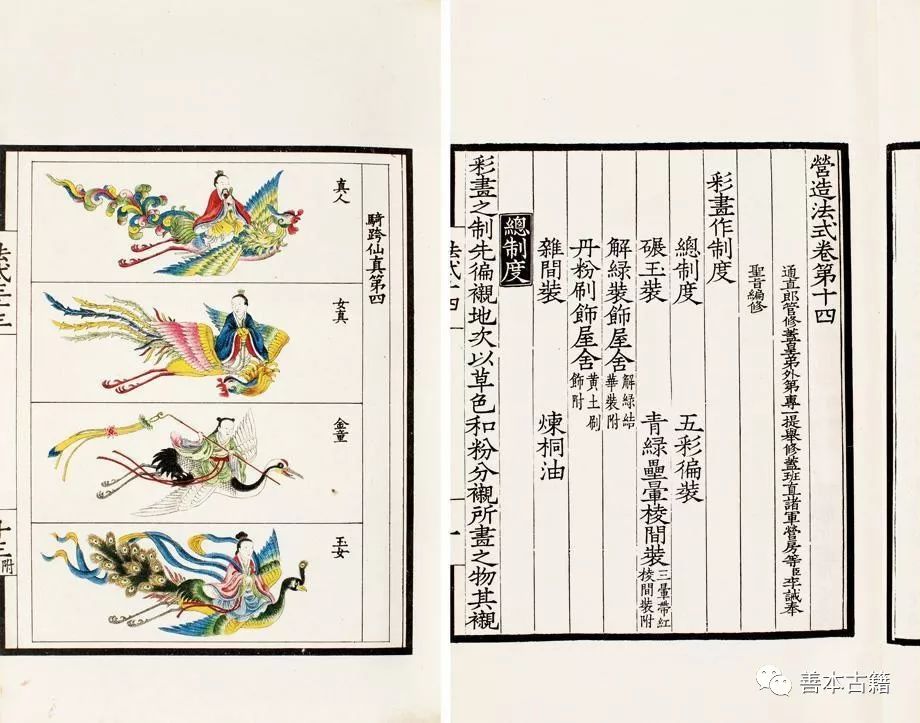 營造法式卷第十四
通直郎管修蓋皇弟外第專一提舉修蓋班直諸軍營房等臣李誡奉
聖旨編修
彩畫作制度
總制度 五彩徧裝
碾玉裝 青綠疊暈棱間裝 三暈帶紅棱間裝附
解綠裝飾屋舍 解綠結華裝附
丹粉刷飾屋舍 黃土刷飾附
雜間裝 煉桐油
總制度
彩畫之制先徧襯地次以草色和粉分襯所畫之物其襯
法式十四
一
騎跨仙真第四
真人
女真
金童
玉女
法式三十三
十三附
善本古籍